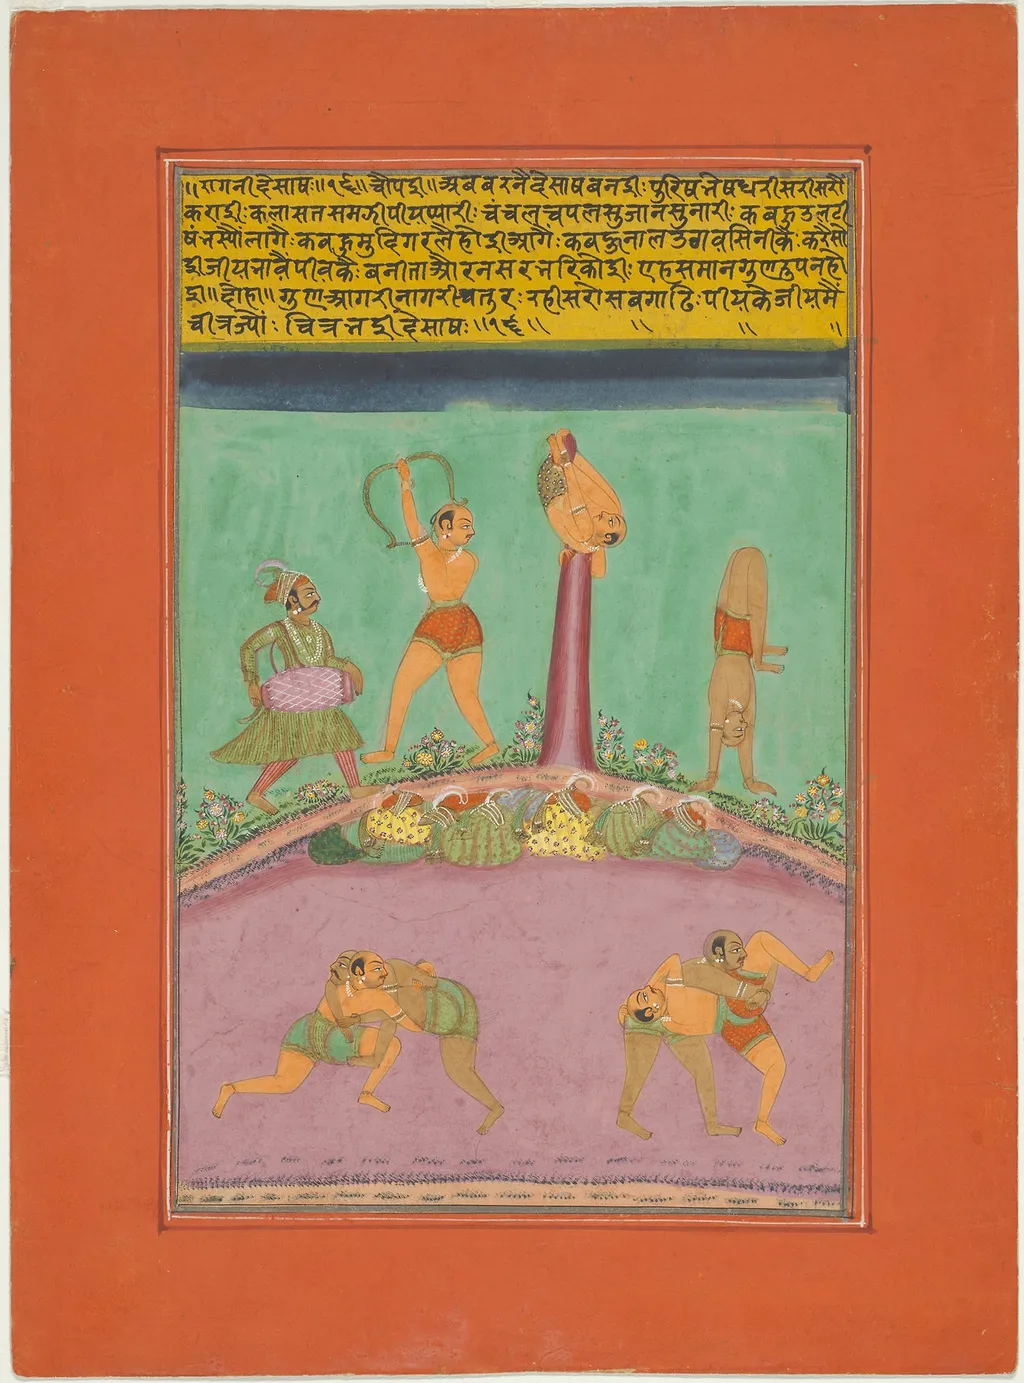 ॥रागनीदेसाषः॥१६॥चौपई॥अबबरनैदेसाषबनाई: पुरिषभेषधरीसरीसरी
कराई: कलासतसमजीपीयप्यारी: चंचलचपलसुजानसुनारी: कबहुउलटी
षंभस्यौंलागै: कबहुमुदिगरलैहोईआगै: कबहुनालउगवसिनीकै: करैसो
ईजीयभावैंपीवकै: बनीताऔरनसरभरिकोई: एहसमानगुणरुपनहो
ई॥दोहा॥गुणआगरीनागरीचतुर: रहीसरोसबगाढि: पीयकेजीयमैं
चीत्रज्यों: चित्रभईदेसाषः॥१६॥ ॥ ॥ ॥